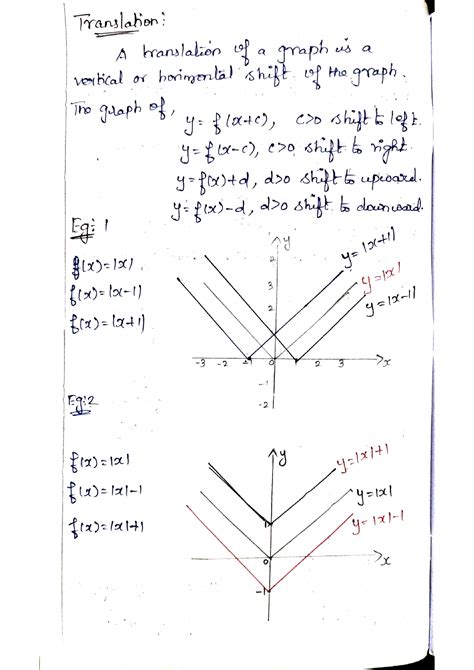 Translation:
A translation of a graph is a
vertical or horizontal shift of the graph.
The graph of,
y = f(x+c), c>0 shift to left.
y = f(x-c), c>0, shift to right.
y = f(x)+d, d>0 shift to upward.
y = f(x)-d, d>0 shift to downward.
Eg: 1
f(x)=|x|
f(x)=|x-1|
f(x)=|x+1|
y
y=|x+1|
y=|x|
y=|x-1|
3
2
-3 -2 -1 0 1 2 3 x
-1
-2
Eg:2
f(x)=|x|
f(x)=|x|-1
f(x)=|x|+1
y
y=|x|+1
y=|x|
y=|x|-1
1
0
x
-1